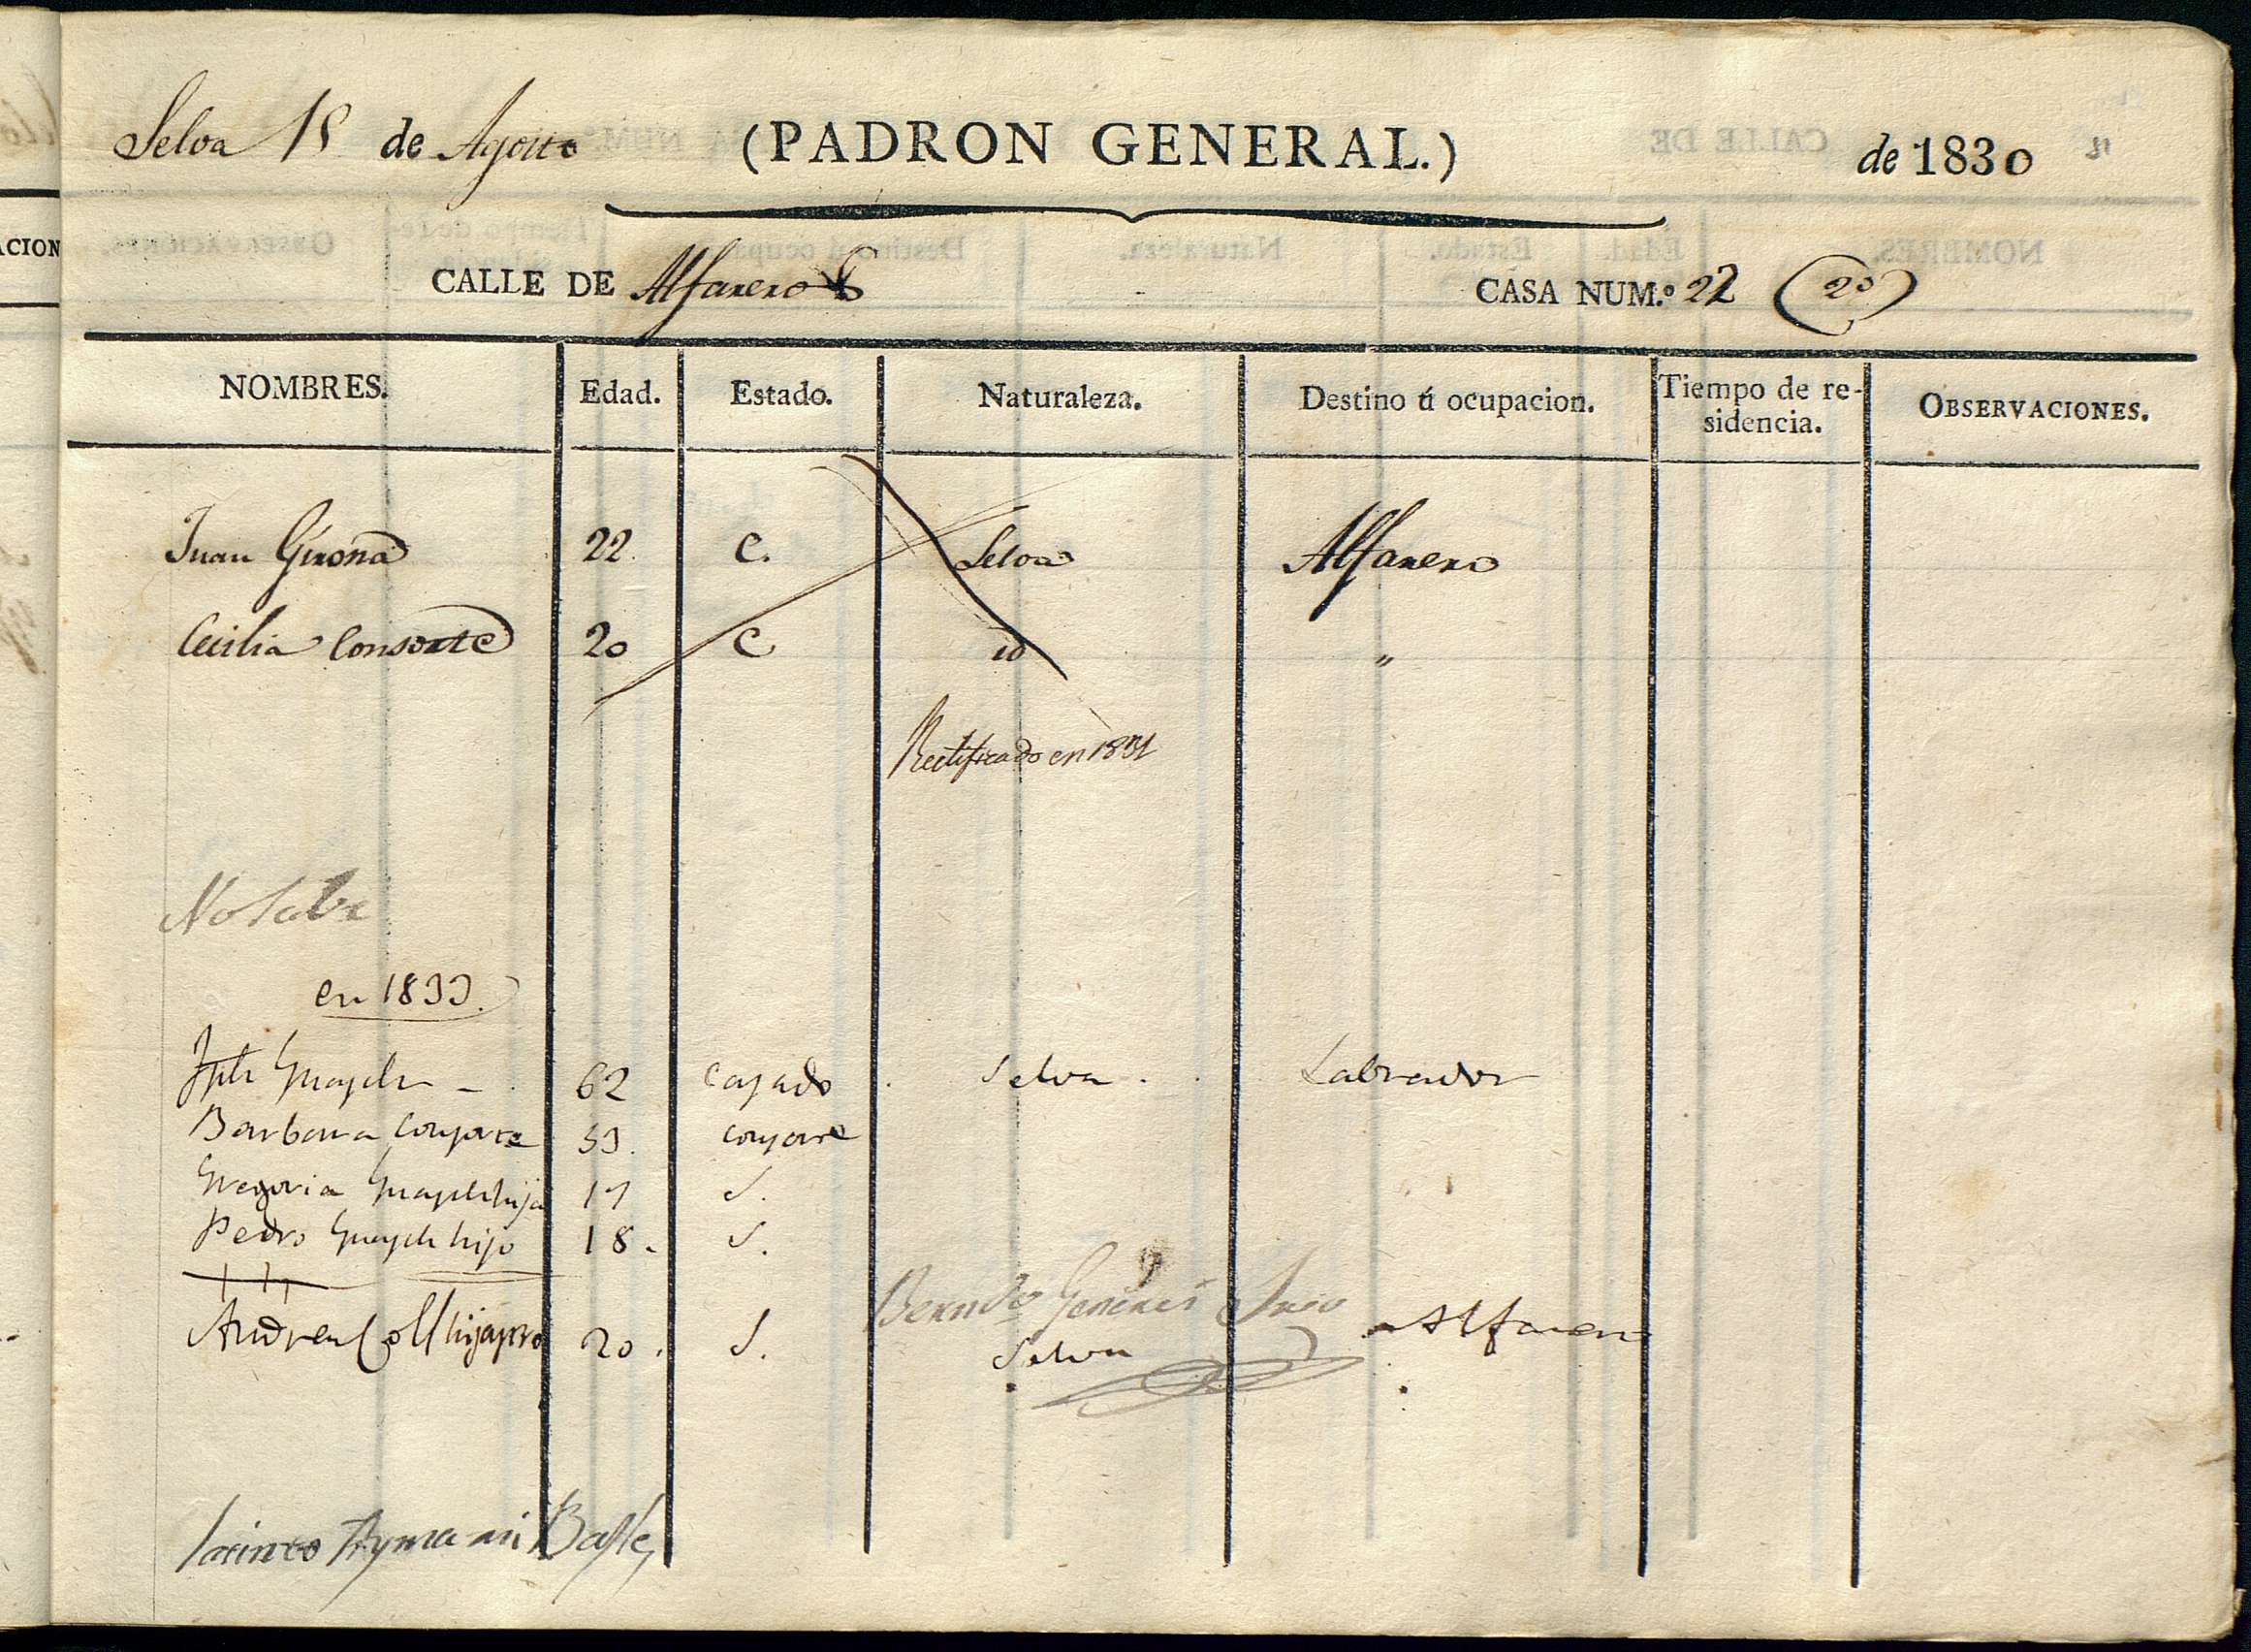 Selva 18 de Agosto (PADRON GENERAL.) de 1830
CALLE DE Alfareros CASA NUM.º 22 (20)
NOMBRES. Edad. Estado. Naturaleza. Destino ú ocupacion. Tiempo de re-
sidencia. OBSERVACIONES.
Juan Girona 22. C. Selva Alfarero
Cecilia Consorte 20 C id "
Rectificado en 1831
en 1833.
62 Casado Selva. Labrador
Barbara Consorte 53. Consorte
Gregoria hija 17 S.
Pedro hijo 18. S.
Genéres
Andreu Coll 20. S. Selva Alfarero
Jacinto Aymami Bayle